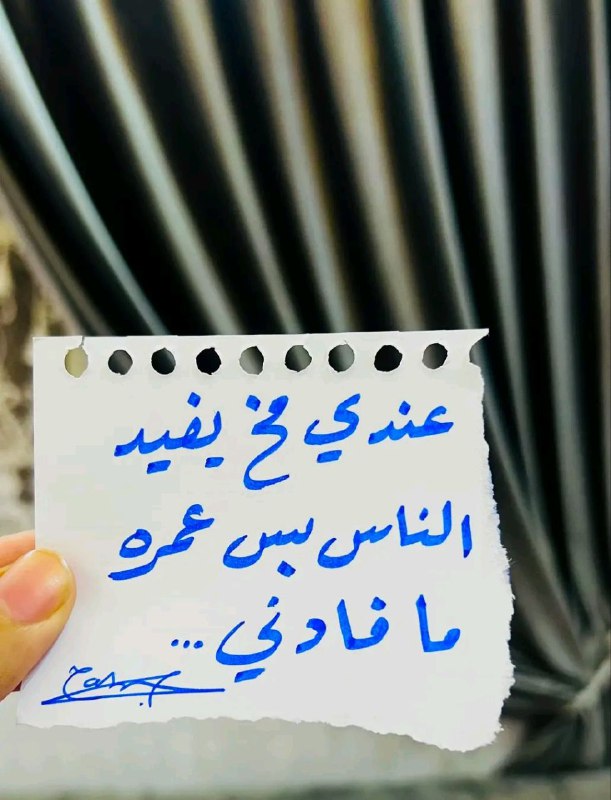 عندي مخ يفيد
الناس بس عمره
ما فادني...